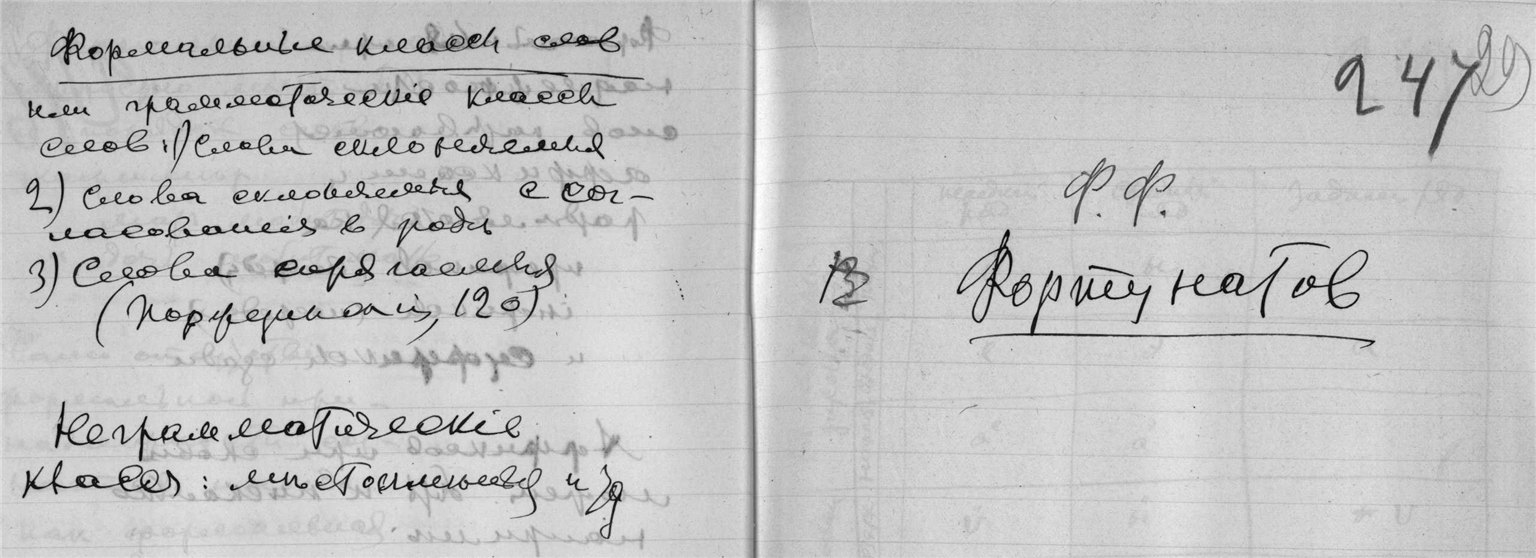 Формальные классы слов
или грамматическіе классы
слов: 1) Слова склоняемыя
2) Слова склоняемыя с сог-
ласованіем в родѣ
3) Слова спрягаемыя
120)
Неграмматическіе
классы: мѣстоименія и
247
29
Ф. Ф.
Фортунатов